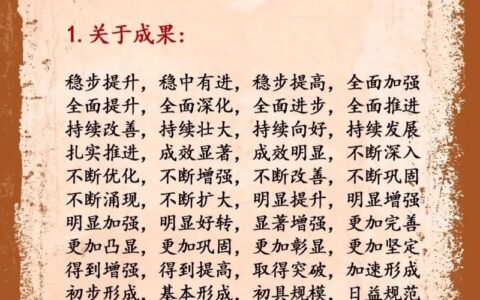 1.关于成果：
稳步提升，稳中有进，稳步提高，全面加强
全面提升，全面深化，全面进步，全面推进
持续改善，持续壮大，持续向好，持续发展
扎实推进，成效显著，成效明显，不断深入
不断优化，不断增强，不断改善，不断巩固
不断涌现，不断扩大，明显提升，明显增强
明显加强，明显好转，显著增强，更加完善
更加凸显，更加巩固，更加彰显，更加坚定
得到增强，得到提高，取得突破，加速形成
初步形成，基本形成，初具规模，日益规范